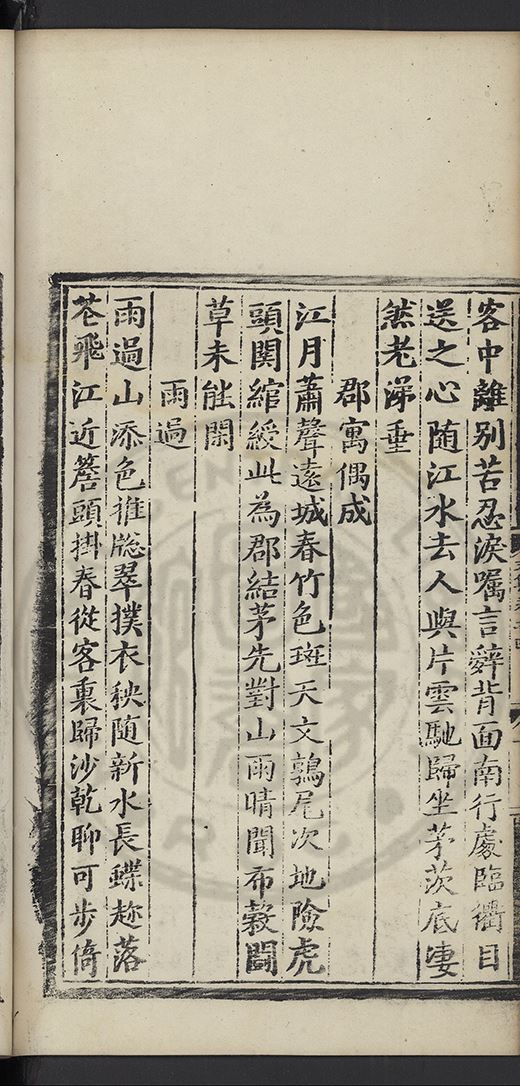 客中離别苦忍淚囑言辭背面南行處臨衢目
送之心随江水去人與片雲馳歸坐茅茨底凄
然老涕垂
郡寓偶成
江月蕭聲遠城春竹色斑天文鶉尾次地險虎
頭関綰綬此為郡結茅先對山雨晴聞布榖鬪
草未能閑
雨過
雨過山添色推牎翠撲衣秧随新水長蝶趂落
花飛江近簷頭掛春從客裏歸沙乾聊可步倚